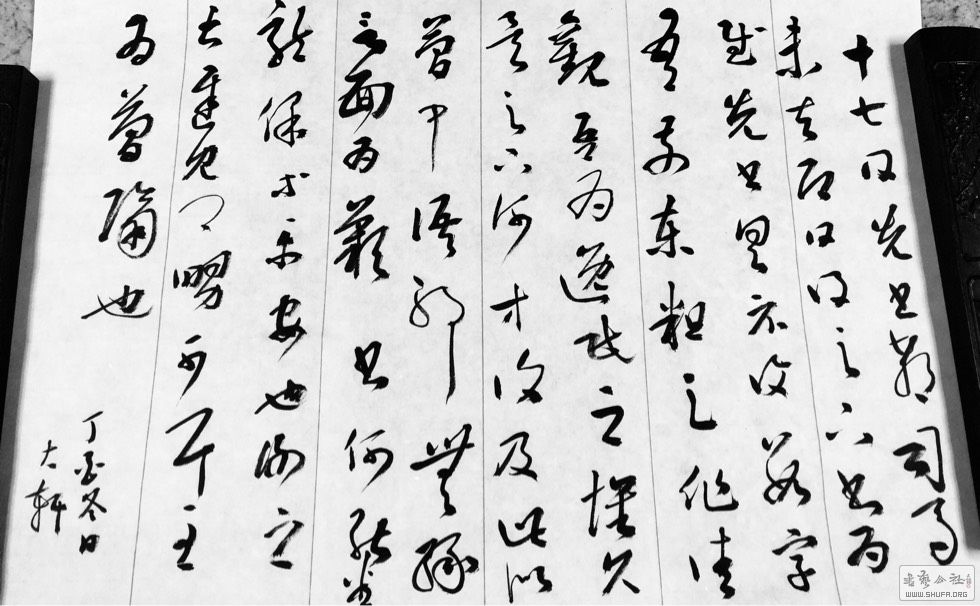 十七日先書郗司馬
未去即日得足下書為
慰先書具示復數字
吾前東粗足作佳
觀吾為逸民之懷久
矣足下何方復及此似
夢中語耶無緣
言面為歎書何能悉
龍保等平安也謝之
甚遲見卿舅可耳至
為簡隔也
丁酉冬日
大軒
书艺公社
WWW.SHUFA.ORG